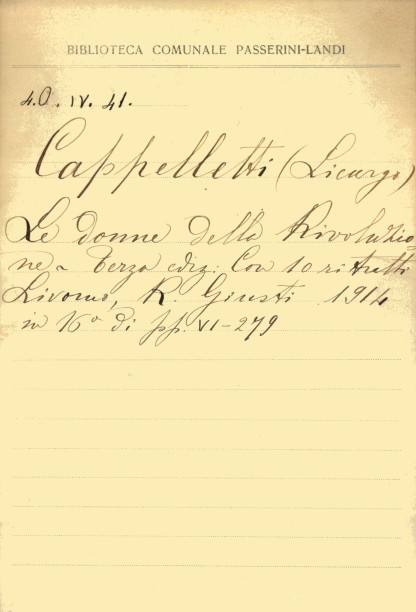 BIBLIOTECA COMUNALE PASSERINI-LANDI
40. IV. 41.
Cappelletti (Licurgo)
Le donne della Rivoluzio=
ne - Terza ediz: Con 10 ritratti
Livorno, R. Giusti 1914
in 16º di pp. VI-279